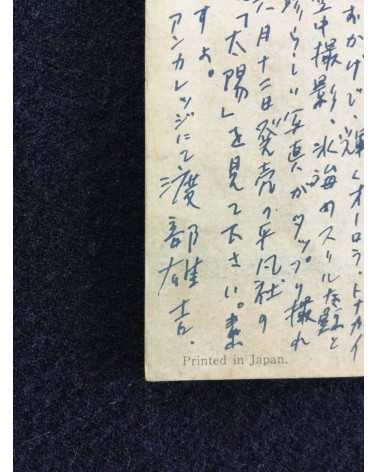 おかげで、輝くオーロラ、トナカイ
空中撮影、氷海のスリルな旅と
珍らしい写真がタップリ撮れ
月十二日発売の平凡社の
「太陽」を見て下さい。
すよ。
アンカレッジにて 渡部雄吉.
Printed in Japan.